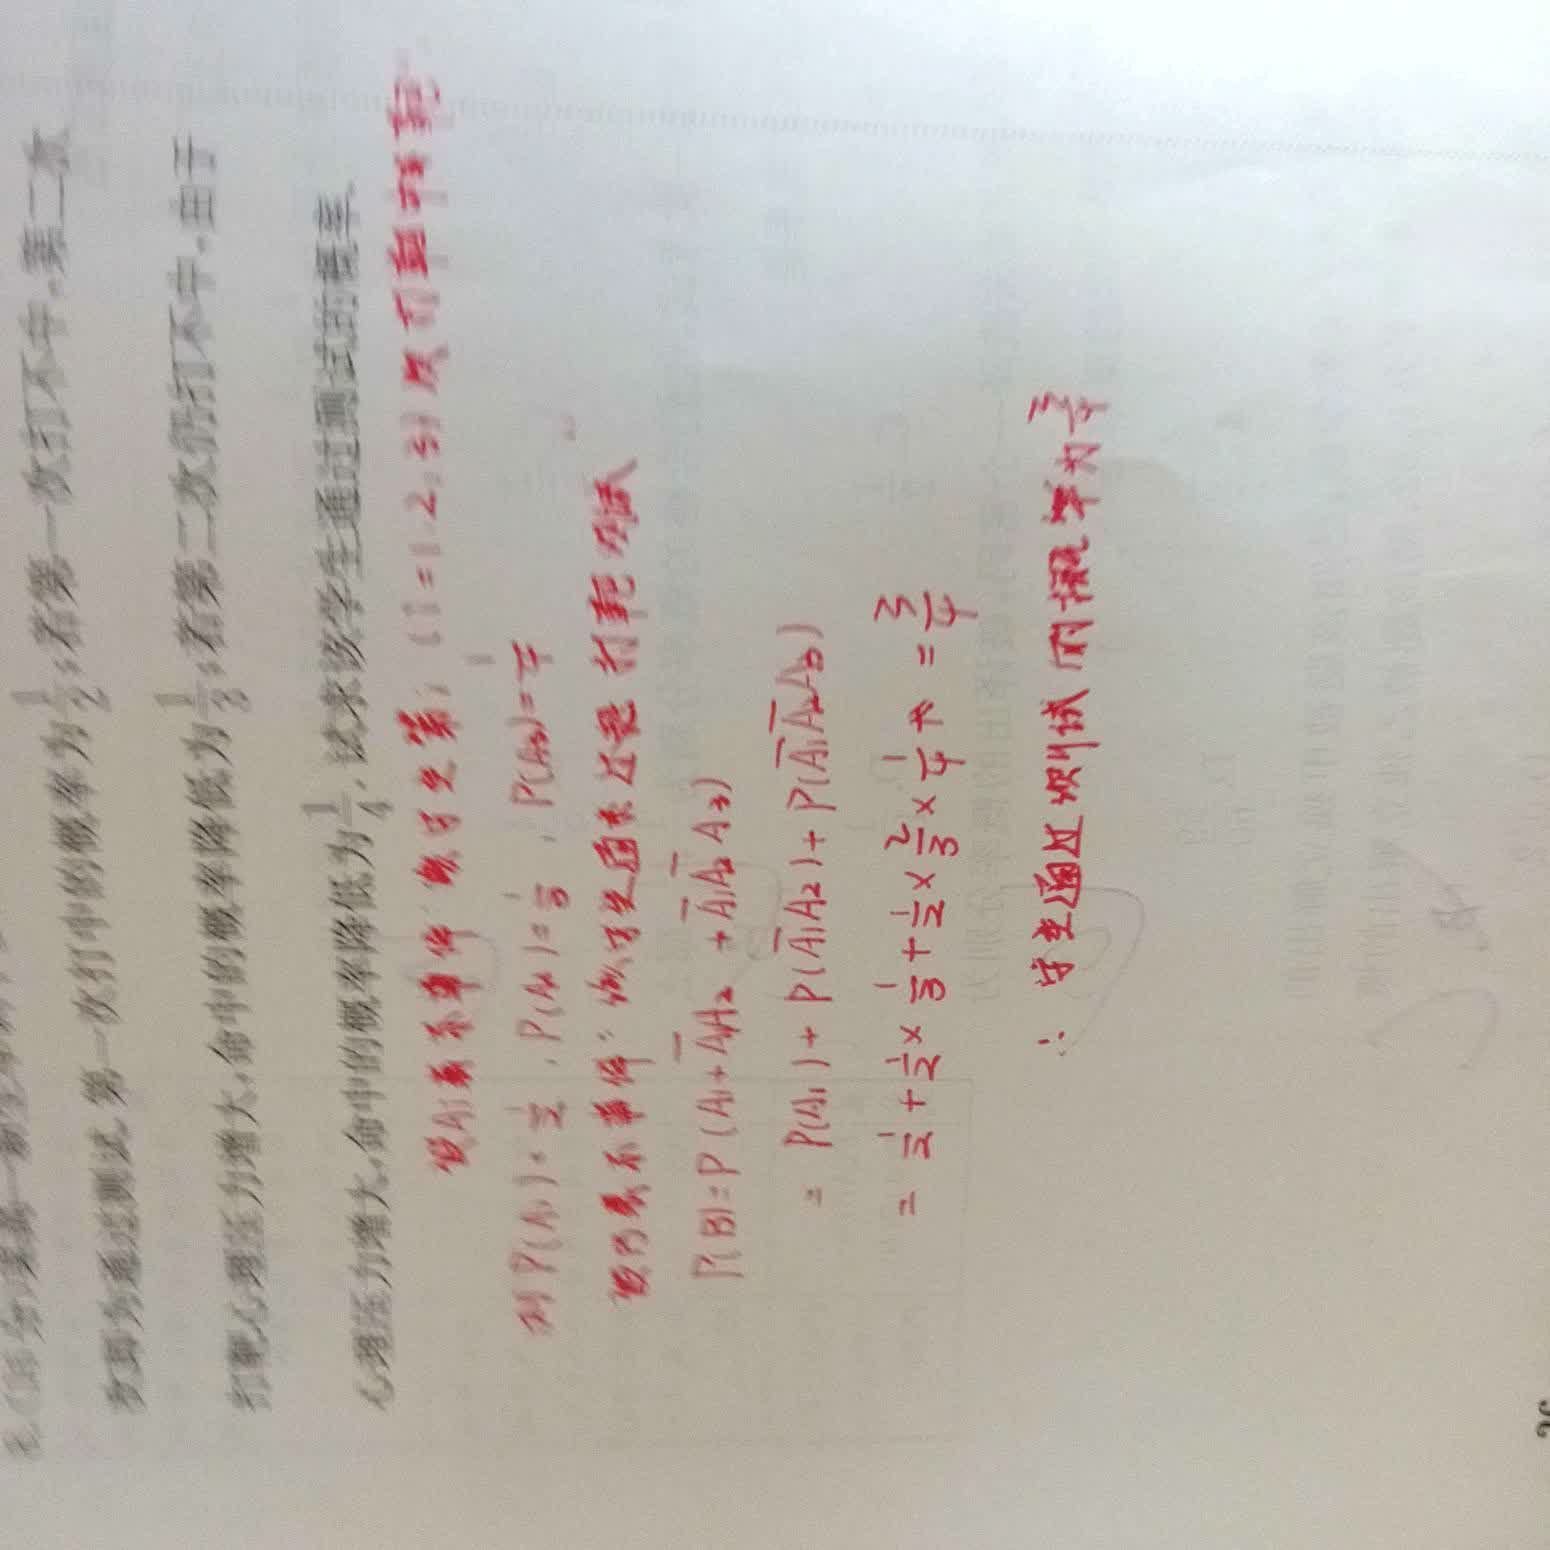 次即为通过测试. 第一次打中的概率为1/2;若第一次打不中,第二次
打靶心理压力增大,命中的概率降低为1/3;若第二次仍打不中,由于
心理压力增大,命中的概率降低为1/4.试求该学生通过测试的概率.
设Ai表示事件 学生第i (i=1.2.3)次打
则P(A1)=1/2 , P(A2)=1/3 , P(A3)=1/4
设B表示事件: 学生通过 打靶测试
P(B)=P(A1+A̅1A2+A̅1A̅2A3)
= P(A1)+P(A̅1A2)+P(A̅1A̅2A3)
= 1/2+1/2×1/3+1/2×2/3×1/4 = 3/4
∴ 学生通过测试的概率为3/4
26